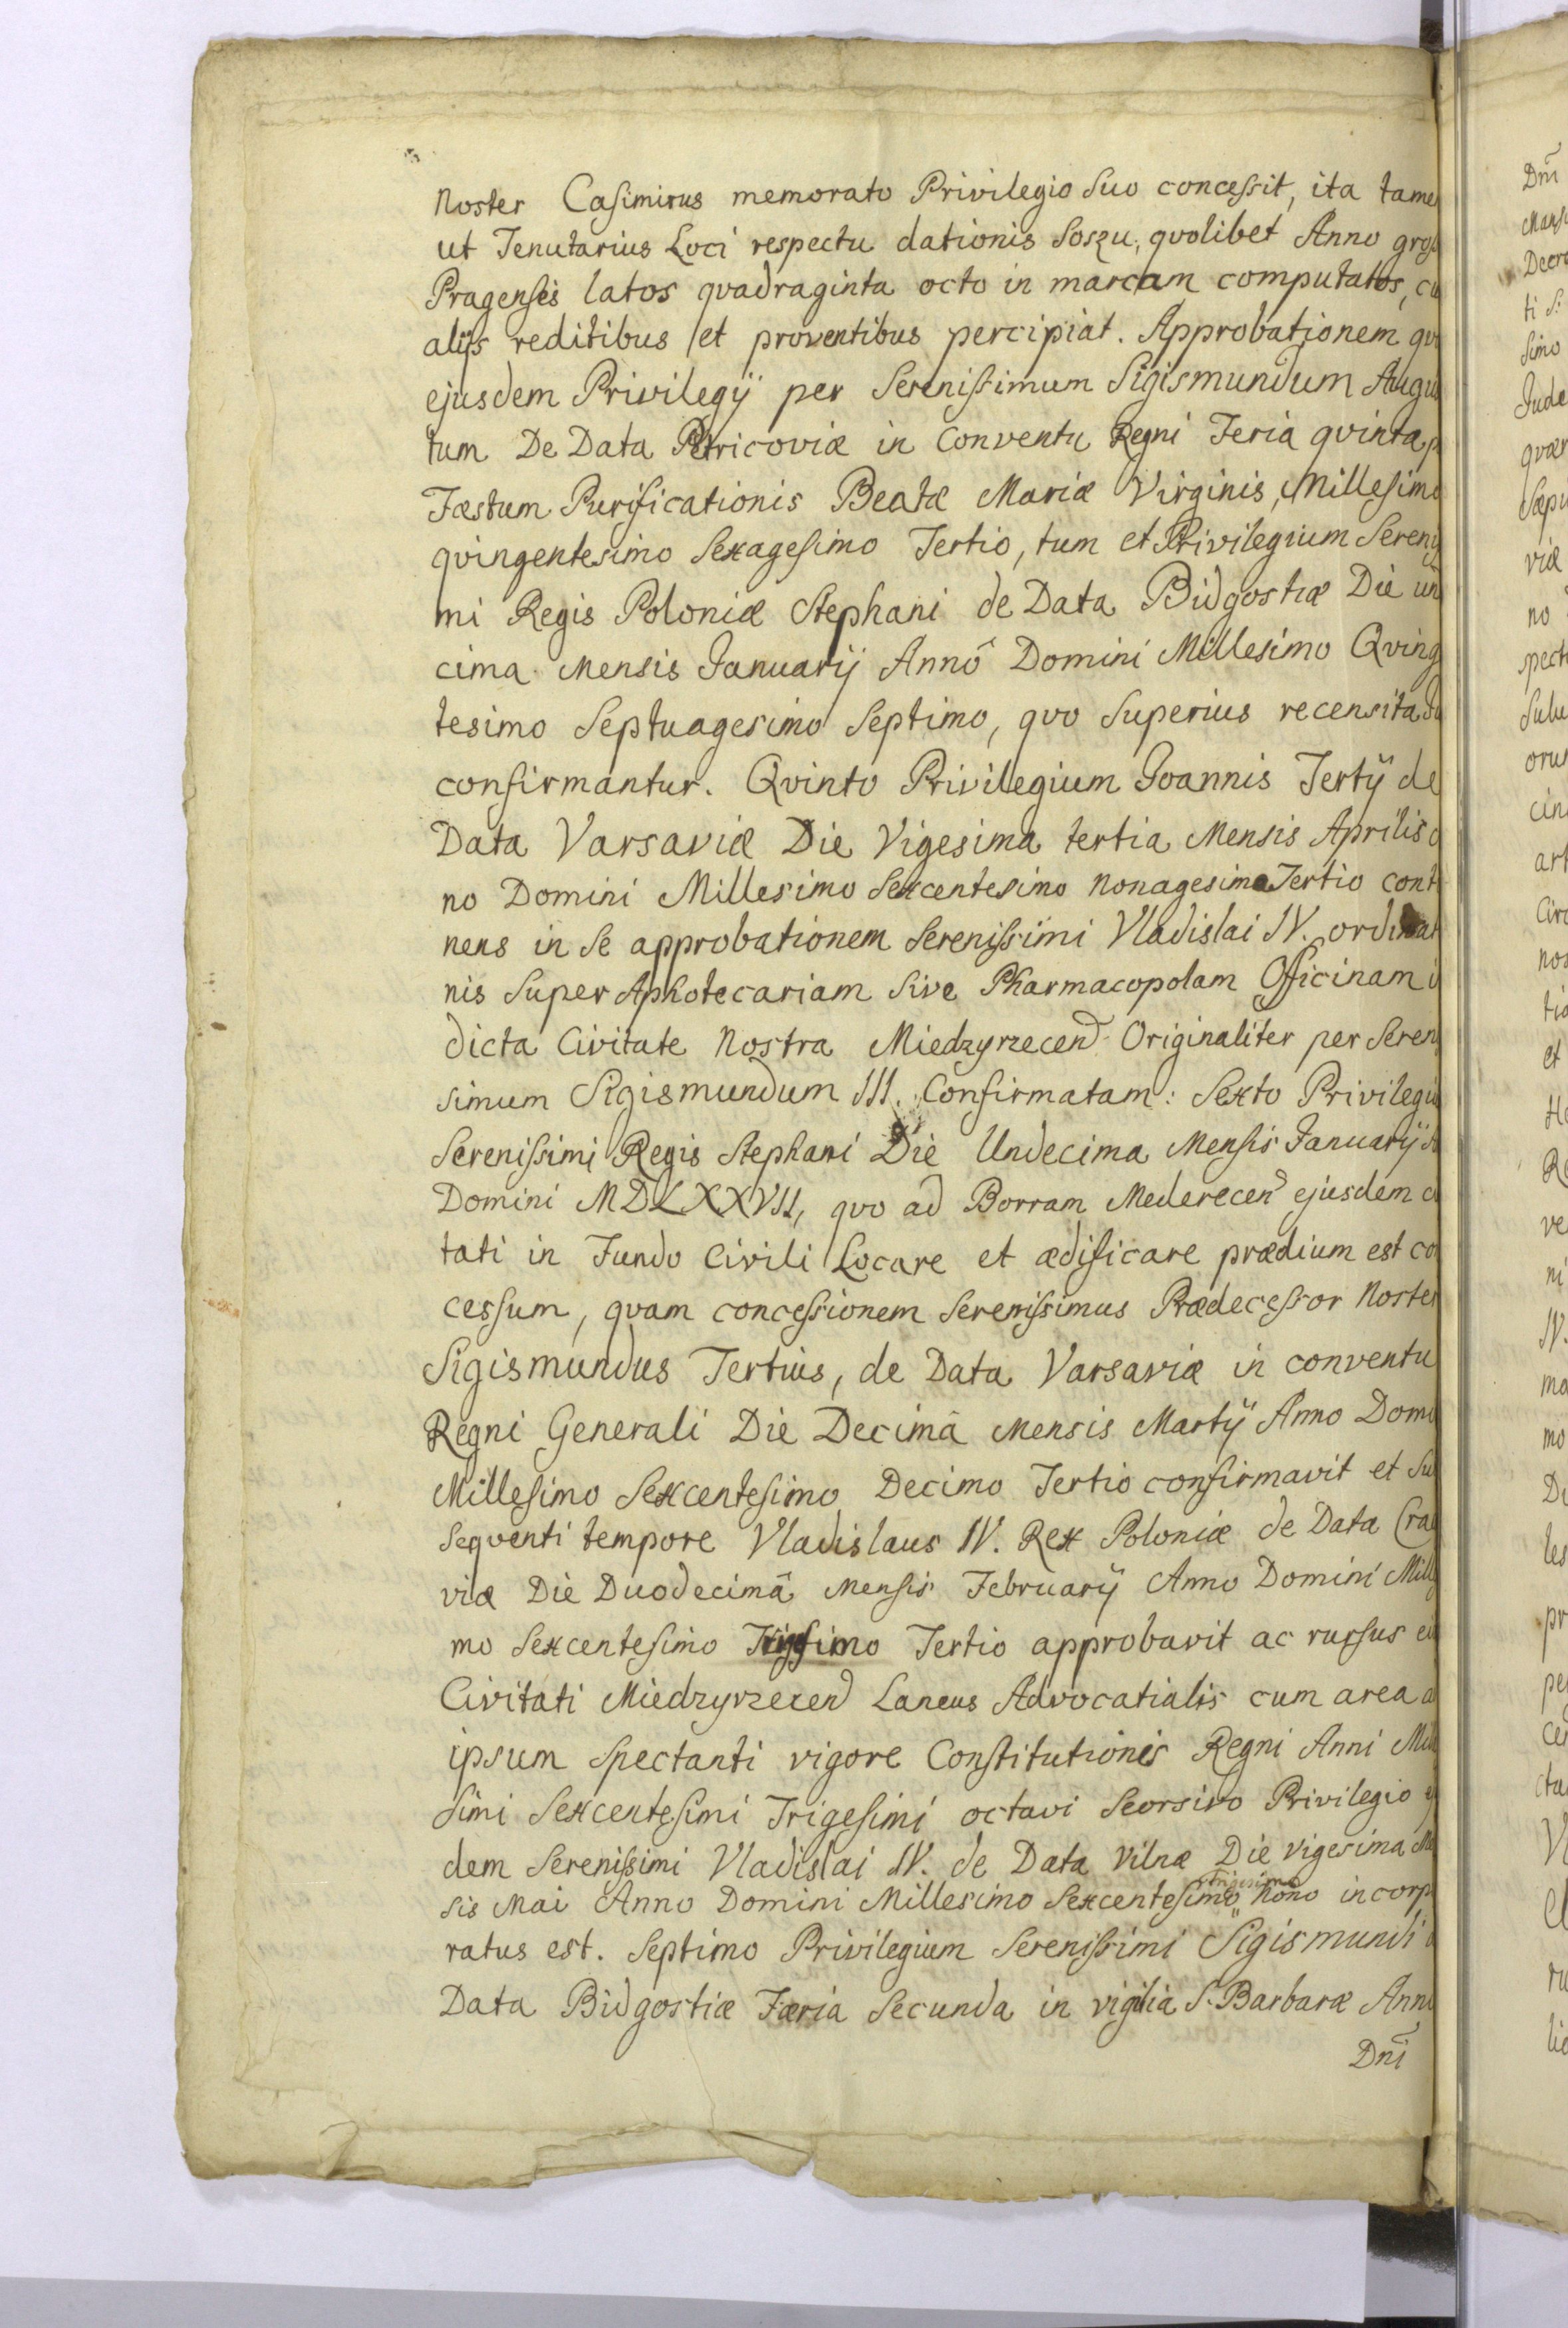 noster Casimirus memorato Privilegio Suo concessit, ita tame
ut Tenutarius Loci respectu dationis Soszu, qvolibet Anno gros
Pragenses latos qvadraginta octo in marcam computatos, cu
alijs reditibus et proventibus percipiat. Approbationem qvo
ejusdem Privilegij per Serenissimum Sigismundum Augus
tum De Data Petricoviæ in Conventu Regni Feria qvinta p
Fæstum Purificationis Beatæ Mariæ Virginis, Millesimo
qvingentesimo Sexagesimo Tertio, tum et Privilegium Sereniss
mi Regis Poloniæ Stephani de Data Bidgostiæ Die un
cima Mensis Januarij Annô Domini Millesimo Qving
tesimo Septuagesimo Septimo, qvo Superius recensita
confirmantur. Qvinto Privilegium Joannis Tertij de
Data Varsaviæ Die Vigesima tertia Mensis Aprilis
no Domini Millesimo Sexcentesimo Nonagesimo Tertio cont
nens in Se approbationem Serenissimi Vladislai IV. ordinat
nis Super Aphotecariam Sive Pharmacopolam Officinam i
dicta Civitate Nostra Miedzyrzecen̄ Originaliter per Seren
simum Sigismundum III. Confirmatam: Sexto Privilegiu
Serenissimi Regis Stephani Die Undecima Mensis Januarij
Domini MDLXXVII, qvo ad Borram Mederecen̄ ejusdem ci
tati in Fundo Civili Locare et ædificare prædium est co
cessum, qvam concessionem Serenissimus Prædecessor Noster
Sigismundus Tertius, de Data Varsaviæ in conventu
Regni Generali Die Decimâ Mensis Martij Anno Domi
Millesimo Sexcentesimo Decimo Tertio confirmavit et Su
seqventi tempore Vladislaus IV. Rex Poloniæ de Data Cra
viæ Die Duodecimâ Mensis Februarij Anno Domini Mille
mo Sexcentesimo Trigesimo Tertio approbavit ac rursus ei
Civitati Miedzyrzecen̄ Laneus Advocatialis cum area a
ipsum Spectanti vigore Constitutionis Regni Anni Mill
simi Sexcentesimi Trigesimi octavi Seorsivo Privilegio ej
dem Serenissimi Vladislai IV. de Data Vilnæ Die vigesima Me
sis Mai Anno Domini Millesimo Sexcentesimo trigesimo Nono incorp
ratus est. Septimo Privilegium Serenissimi Sigismundi d
Data Bidgostiæ Færia Secunda in vigilia S. Barbaræ Anno
Dnī